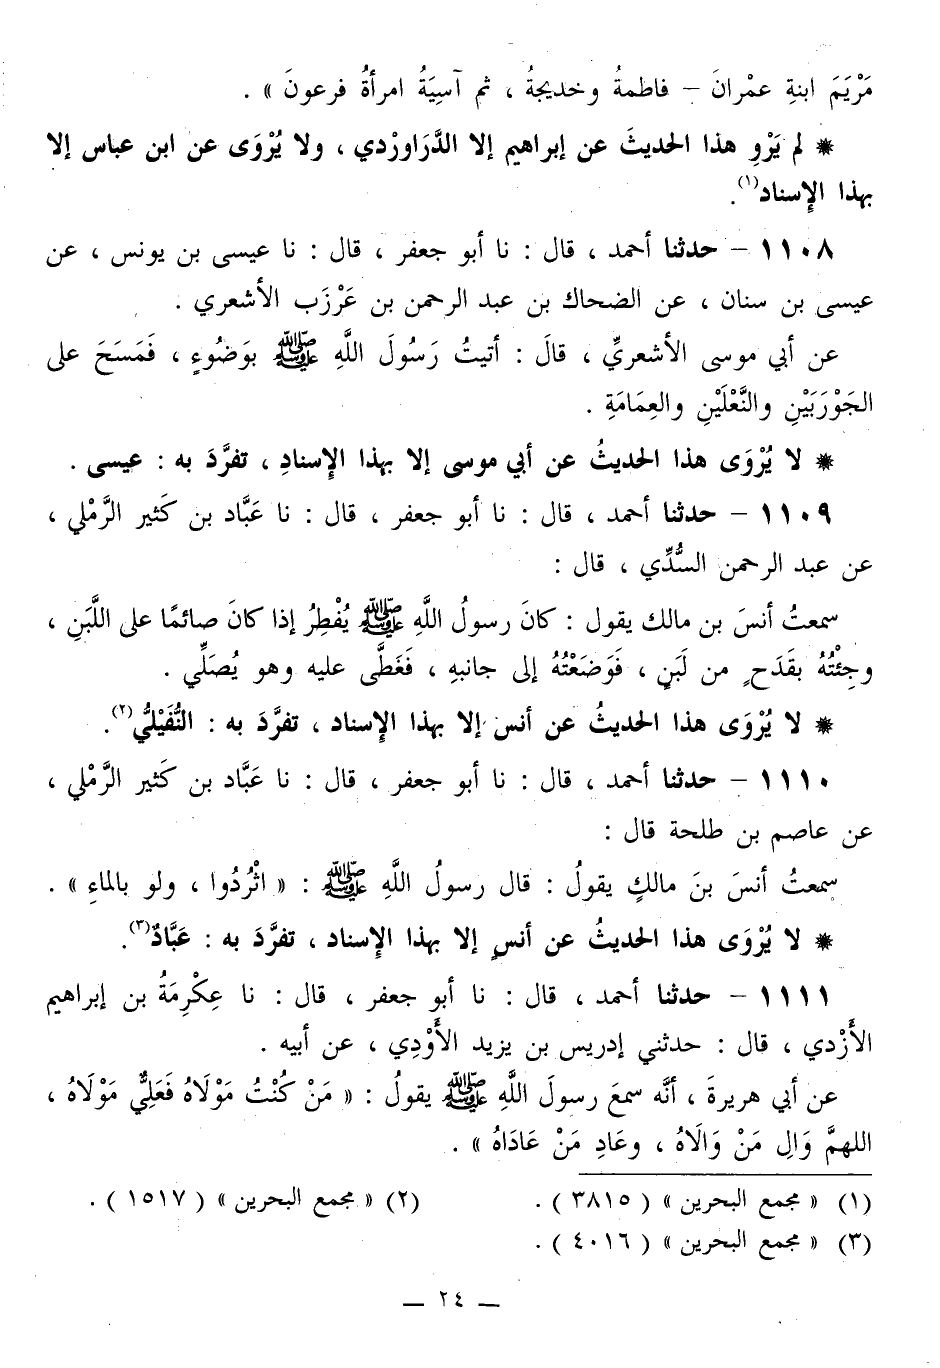 مَرْيَمَ ابنةِ عمْرانَ – فاطمةُ وخديجةُ ، ثم آسِيَةُ امرأةُ فرعونَ » .
* لم يَرْوِ هذا الحديثَ عن إبراهيم إلا الدَّرَاورْدي ، ولا يُرْوَى عن ابن عباس إلا
بهذا الإِسناد(١).
١١٠٨ – حدثنا أحمد ، قال : نا أبو جعفر ، قال : نا عيسى بن يونس ، عن
عيسى بن سنان ، عن الضحاك بن عبد الرحمن بن عَرْزَب الأشعري .
عن أبي موسى الأشعريِّ ، قالَ : أتيتُ رَسُولَ اللَّهِ ﷺ بوَضُوءٍ ، فَمَسَحَ على
الجَوْرَبَيْنِ والنَّعْلَيْنِ والعِمَامَةِ .
* لا يُرْوَى هذا الحديثُ عن أبي موسى إلا بهذا الإِسنادِ ، تفرَّدَ به : عيسى .
١١٠٩ – حدثنا أحمد ، قال : نا أبو جعفر ، قال : نا عَبَّاد بن كَثير الرَّمْلي ،
عن عبد الرحمن السُّدِّي ، قال :
سمعتُ أنسَ بن مالك يقول : كانَ رسولُ اللَّهِ ﷺ يُفْطِرُ إذا كانَ صائمًا على اللَّبَنِ ،
وجِئْتُهُ بقَدَحٍ من لَبَنٍ ، فَوَضَعْتُهُ إلى جانبهِ ، فَغَطَّى عليه وهو يُصَلِّي .
* لا يُرْوَى هذا الحديثُ عن أنس إلا بهذا الإِسناد ، تفرَّدَ به : النُّفَيْليُّ(٢).
١١١٠ – حدثنا أحمد ، قال : نا أبو جعفر ، قال : نا عَبَّاد بن كَثير الرَّمْلي ،
عن عاصم بن طلحة قال :
سمعتُ أنسَ بنَ مالكٍ يقولُ : قال رسولُ اللَّهِ ﷺ : « اثْرُدُوا ، ولو بالماءِ » .
* لا يُرْوَى هذا الحديثُ عن أنسٍ إلا بهذا الإِسناد ، تفرَّدَ به : عَبَّادٌ(٣).
١١١١ – حدثنا أحمد ، قال : نا أبو جعفر ، قال : نا عِكْرِمَةُ بن إبراهيم
الأَزْدي ، قال : حدثني إدريس بن يزيد الأَوْدِي ، عن أبيه .
عن أبي هريرةَ ، أنَّه سمعَ رسولَ اللَّهِ ﷺ يقولُ : « مَنْ كُنْتُ مَوْلَاهُ فَعَلِيٌّ مَوْلَاهُ ،
اللهمَّ وَالِ مَنْ وَالَاهُ ، وعَادِ مَنْ عَادَاهُ » .
(١) « مجمع البحرين » ( ٣٨١٥ ) .
(٢) « مجمع البحرين » ( ١٥١٧ ) .
(٣) « مجمع البحرين » ( ٤٠١٦ ) .
— ٢٤ —